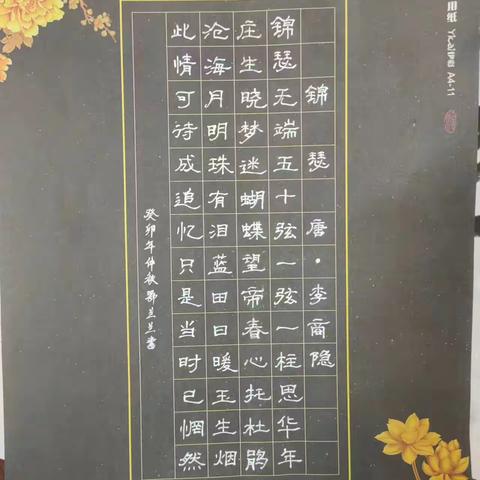 锦瑟 唐·李商隐
锦瑟无端五十弦一弦一柱思华年
庄生晓梦迷蝴蝶望帝春心托杜鹃
沧海月明珠有泪蓝田日暖玉生烟
此情可待成追忆只是当时已惘然
癸卯年仲秋鄂兰兰书
用纸
A4-11